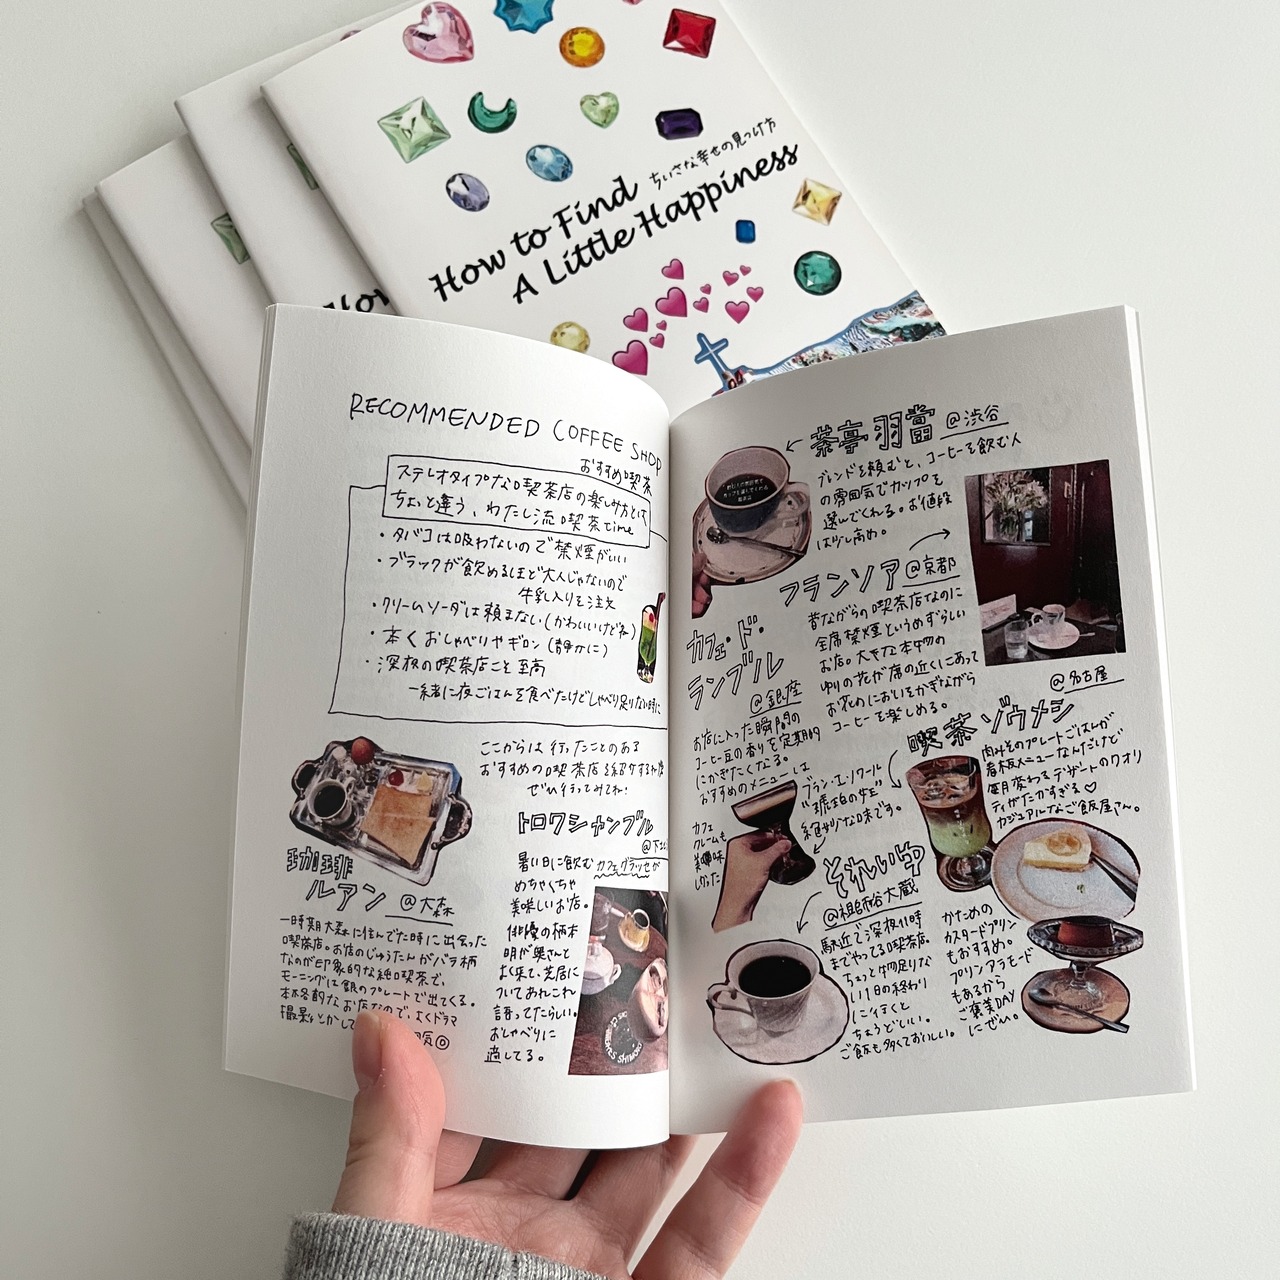 How to Find
ちいさな幸せの見つけ方
A Little Happiness
RECOMMENDED COFFEE SHOP
おすすめ喫茶
ステレオタイプな喫茶店の楽しみ方とは
ちょと違う、わたし流喫茶time
・タバコは吸わないので禁煙がいい
・ブラックが飲めるほど大人じゃないので
牛乳入りを注文
・クリームソーダは頼まない(かわいいけどね)
・本くおしゃべりやギロン(静かに)
・深夜の喫茶店こそ至高
一緒に夜ごはんを食べたけどしゃべり足りない時に
ここからは行ったことのある
おすすめの喫茶店を紹介するね
ぜひ行ってみてね!
珈琲
ルアン @大森
一時期大森に住んでた時に出会った
喫茶店。お店のじゅうたんがバラ柄
なのが印象的な純喫茶で、
モーニングは銀のプレートで出てくる。
本格的なお店なので、よくドラマ
撮影とかして
トロワシャンブル
@下北
暑い日に飲む
カフェグラッセが
めちゃくちゃ
美味しいお店。
俳優の柄本
明が奥さんと
よく来て、芝居に
ついてあれこれ
語ってたらしい。
おしゃべりに
適してる。
茶亭 羽當 @渋谷
ブレンドを頼むと、コーヒーを飲む人
の雰囲気でカップを
選んでくれる。お値段
は少し高め。
フランソア @京都
昔ながらの喫茶店なのに
全席禁煙というめずらしい
お店。大きな本物の
ゆりの花が席の近くにあって
お花のにおいをかぎながら
コーヒーを楽しめる。
カフェ・ド・
ランブル
@銀座
お店に入った瞬間の
コーヒー豆の香りを定期的
にかぎたくなる。
おすすめのメニューは
ブラン・エ・ノワール
"琥珀の女王"
絶妙な味です。
カフェ
クレームも
美味
しかった
@名古屋
喫茶 ゾウメシ
肉みそのプレートごはんが
看板メニューなんだけど
毎月変わるデザートのクオリ
ティがたかすぎる♡
カジュアルなご飯屋さん。
それいゆ
@祖師谷大蔵
駅近で深夜11時
までやってる喫茶店。
ちょっと物足りな
い1日の終わり
に行くと
ちょうどいい。
ご飯も多くておいしい。
かための
カスタードプリン
もおすすめ。
プリンアラモード
もあるから
ご褒美DAY
にぜひ。